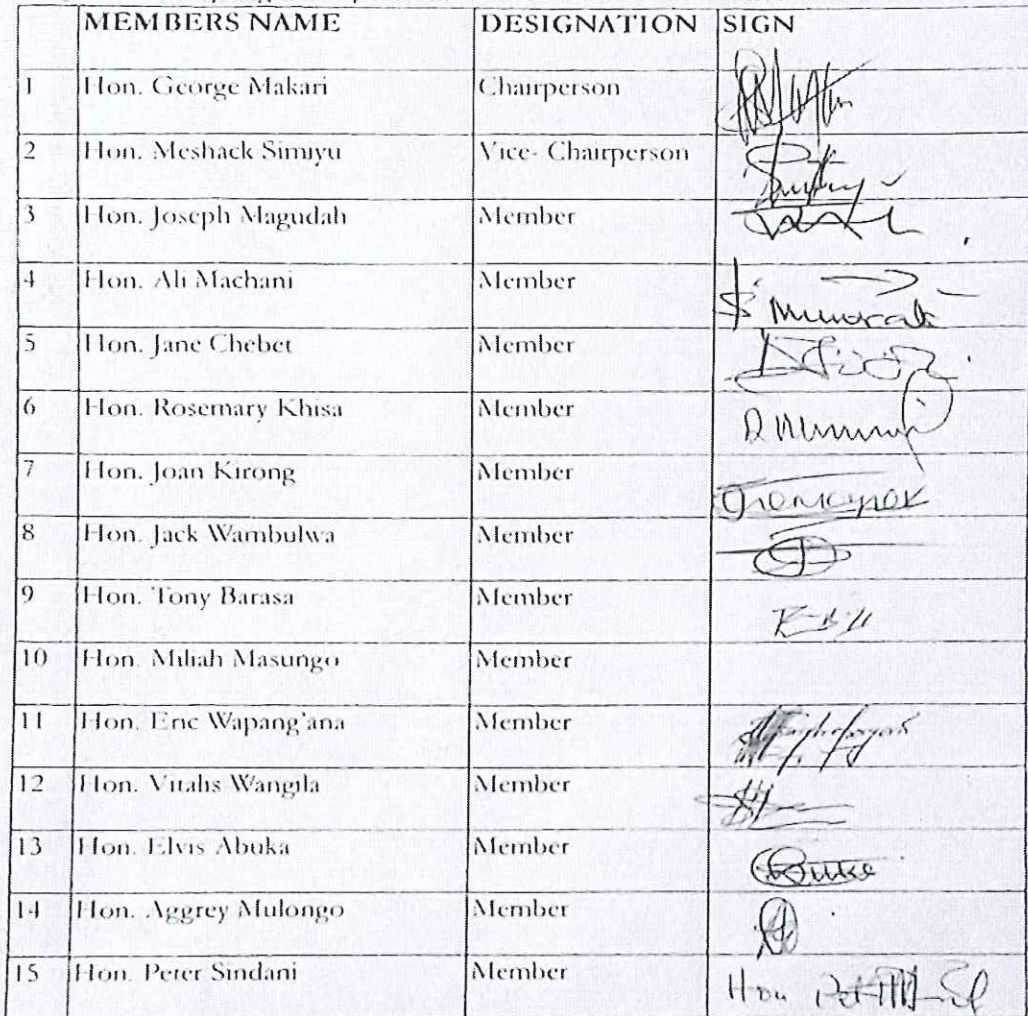 MEMBERS NAME DESIGNATION SIGN
1 Hon. George Makari Chairperson
2 Hon. Meshack Simiyu Vice: Chairperson
3 Hon. Joseph Magudah Member
4 Hon. Ali Machani Member
5 Hon. Jane Chebet Member
6 Hon. Rosemary Khisa Member
7 Hon. Joan Kirong Member
8 Hon. Jack Wambulwa Member
9 Hon. Tony Barasa Member
10 Hon. Miliah Masungo Member
11 Hon. Eric Wapang'ana Member
12 Hon. Vitalis Wangila Member
13 Hon. Elvis Abuka Member
14 Hon. Aggrey Mulongo Member
15 Hon. Peter Sindani Member Hon